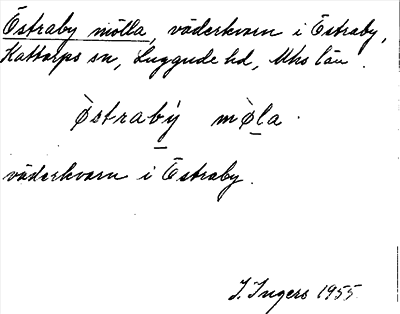 Östraby mölla, väderkvarn i Östraby,
Kattarps sn, Luggude hd, Mhs län.
òstrabý mø̀la.
väderkvarn i Östraby.
I. Ingers 1955.